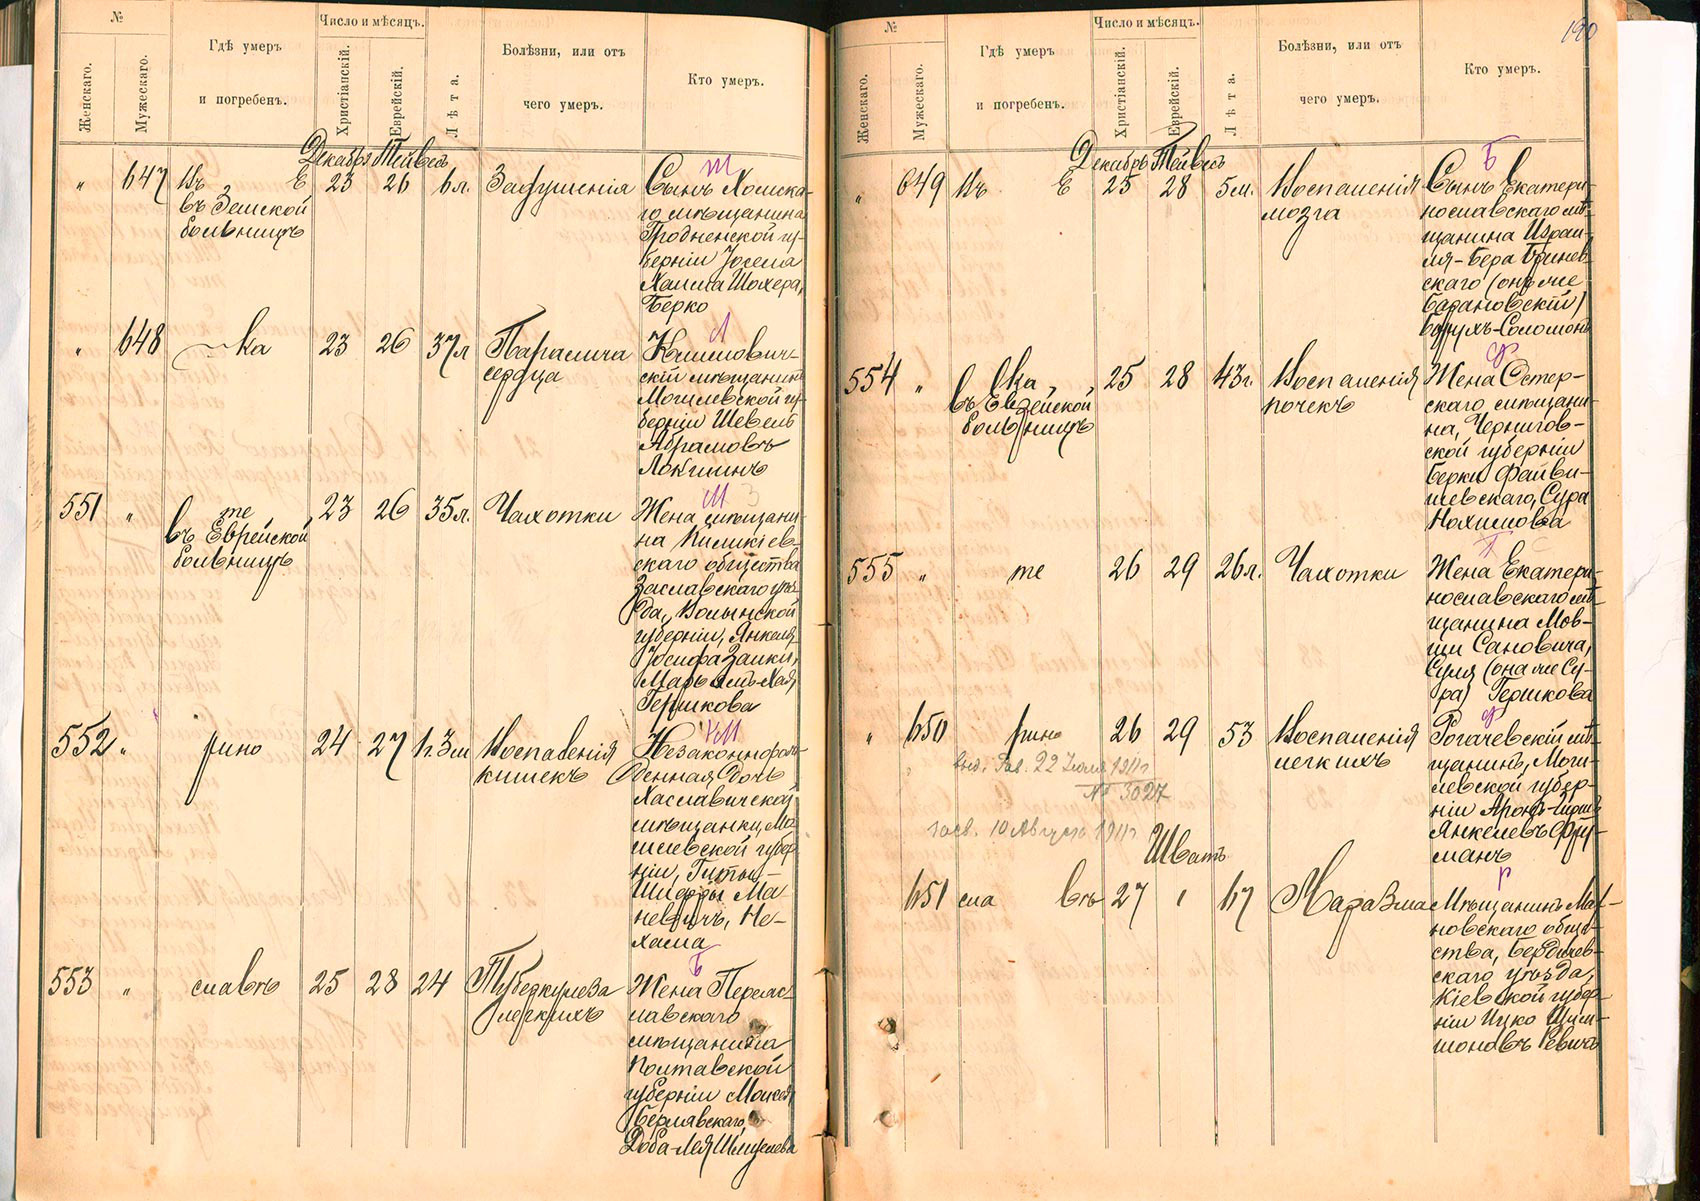 №
Число и мѣсяцъ.
Женскаго.
Мужескаго.
Гдѣ умеръ
и погребенъ.
Христіанскій.
Еврейскій.
Лѣта.
Болѣзни, или отъ
чего умеръ.
Кто умеръ.
Декабрь Тейвесъ
"
647
Въ Е
въ Земской
больницѣ
23
26
6 л.
Задушенія
Т
Сынъ Хомска-
го мѣщанина
Гродненской гу-
берніи Іосела
Хаима Шохера,
Берко
"
648
ка
23
26
37 л
Паралича
сердца
Л
Климович-
скій мѣщанинъ
Могилевской гу-
берніи Шевель
Абрамовъ
Локшинъ
551
"
те
въ Еврейской
больницѣ
23
26
35 л.
Чахотки
М З
Жена мѣщани-
на
скаго общества
Заславскаго уѣз-
да, Волынской
губерніи, Янкеля
Іосифа Заики,
Марьямъ-Хая
Гершкова
552
"
рино
24
27
1 г. 3 м
Воспаленія
кишекъ
КМ
Незаконнорож-
денная дочь
Хаславичской
мѣщанки, Мо-
гилевской губер-
ніи, Гиты-
Шифры Ма-
невичъ, Не-
хама
553
"
славѣ
25
28
24
Туберкулеза
легкихъ
Б
Жена Переяс-
лавскаго
мѣщанина
Полтавской
губерніи Моисея
Берлявскаго,
Доба-Лея Шмуелева
190
№
Число и мѣсяцъ.
Женскаго.
Мужескаго.
Гдѣ умеръ
и погребенъ.
Христіанскій.
Еврейскій.
Лѣта.
Болѣзни, или отъ
чего умеръ.
Кто умеръ.
Декабрь Тейвесъ
"
649
Въ Е
25
28
5 м.
Воспаленія
мозга
Б
Сынъ Екатери-
нославскаго мѣ-
щанина Израи-
ля-Бера Бринев-
скаго (онъ же
Барановскій)
Борухъ-Соломонъ
554
"
ка
въ Еврейской
больницѣ
25
28
43 г.
Воспаленія
почекъ
Ф
Жена Остер-
скаго мѣщани-
на, Чернигов-
ской губерніи
Берки Файви-
шевскаго, Сура
Нохимова
555
"
те
26
29
26 л.
Чахотки
С
Жена Екатери-
нославскаго мѣ-
щанина Мов-
ши Сановича,
Суля (она же Су-
ра) Гершкова
"
650
рино
26
29
53
Воспаленія
легкихъ
Ф
Рогачевскій мѣ-
щанинъ, Моги-
левской губер-
ніи Аронъ-Гирш
Янкелевъ Фру-
манъ
выд. Рав. 22 Іюля 1911 г
№ 3027
засв. 10 Августа 1911 г
Шватъ
651
сла вѣ
27
1
67
Маразма
Р
Мѣщанинъ Мах-
новскаго обще-
ства, Бердичев-
скаго уѣзда,
Кіевской губер-
ніи Ицко Шли-
моновъ Ревичъ